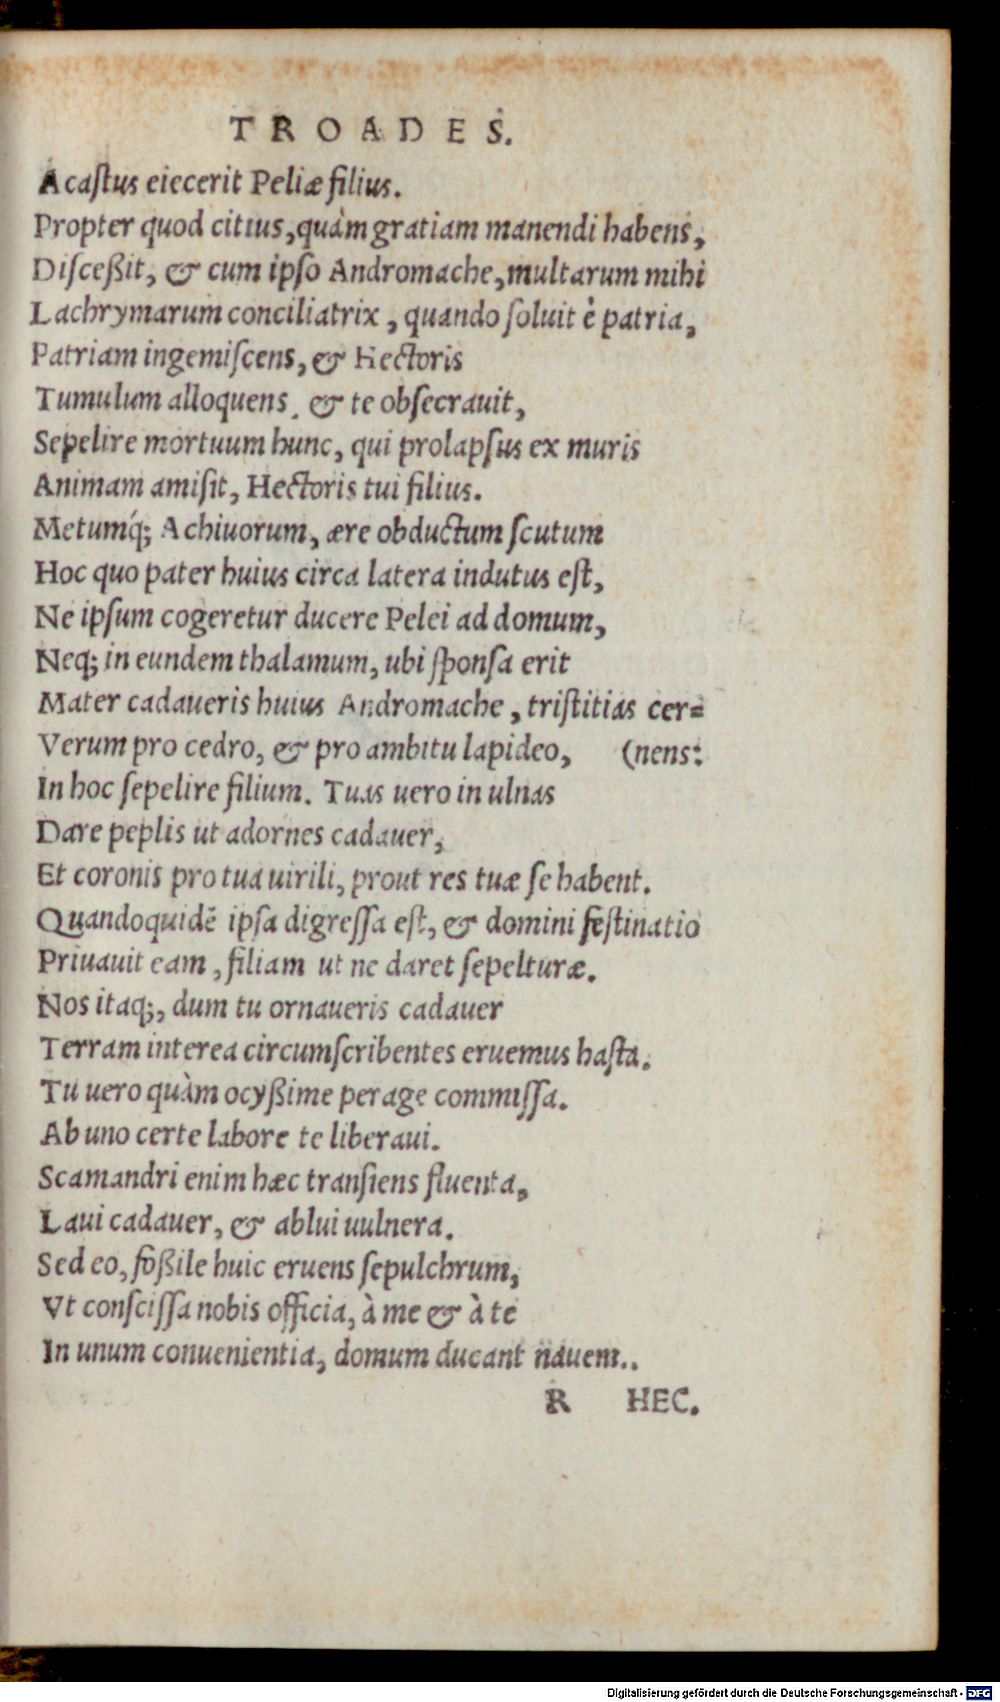 TROADES.
Acaſtus eiecerit Peliæ filius.
Propter quod citius, quàm gratiam manendi habens,
Diſceßit, & cum ipſo Andromache, multarum mihi
Lachrymarum conciliatrix, quando ſoluit è patria,
Patriam ingemiſcens, & Hectoris
Tumulum alloquens, & te obſecrauit,
Sepelire mortuum hunc, qui prolapſus ex muris
Animam amiſit, Hectoris tui filius.
Metumq́; Achiuorum, ære obductum ſcutum
Hoc quo pater huius circa latera indutus eſt,
Ne ipſum cogeretur ducere Pelei ad domum,
Neq; in eundem thalamum, ubi ſponſa erit
Mater cadaueris huius Andromache, triſtitias cer=
Verum pro cedro, & pro ambitu lapideo, (nens:
In hoc ſepelire filium. Tuas uero in ulnas
Dare peplis ut adornes cadauer,
Et coronis pro tua uirili, prout res tuæ ſe habent.
Quandoquidē ipſa digreſſa eſt, & domini feſtinatio
Priuauit eam, filiam ut ne daret ſepelturæ.
Nos itaq;, dum tu ornaueris cadauer
Terram interea circumſcribentes eruemus haſta.
Tu uero quàm ocyßime perage commiſſa.
Ab uno certe labore te liberaui.
Scamandri enim hæc tranſiens fluenta,
Laui cadauer, & ablui uulnera.
Sed eo, foßile huic eruens ſepulchrum,
Vt conſciſſa nobis officia, à me & à te
In unum conuenientia, domum ducant nauem..
R HEC.
Digitalisierung gefördert durch die Deutsche Forschungsgemeinschaft - DFG